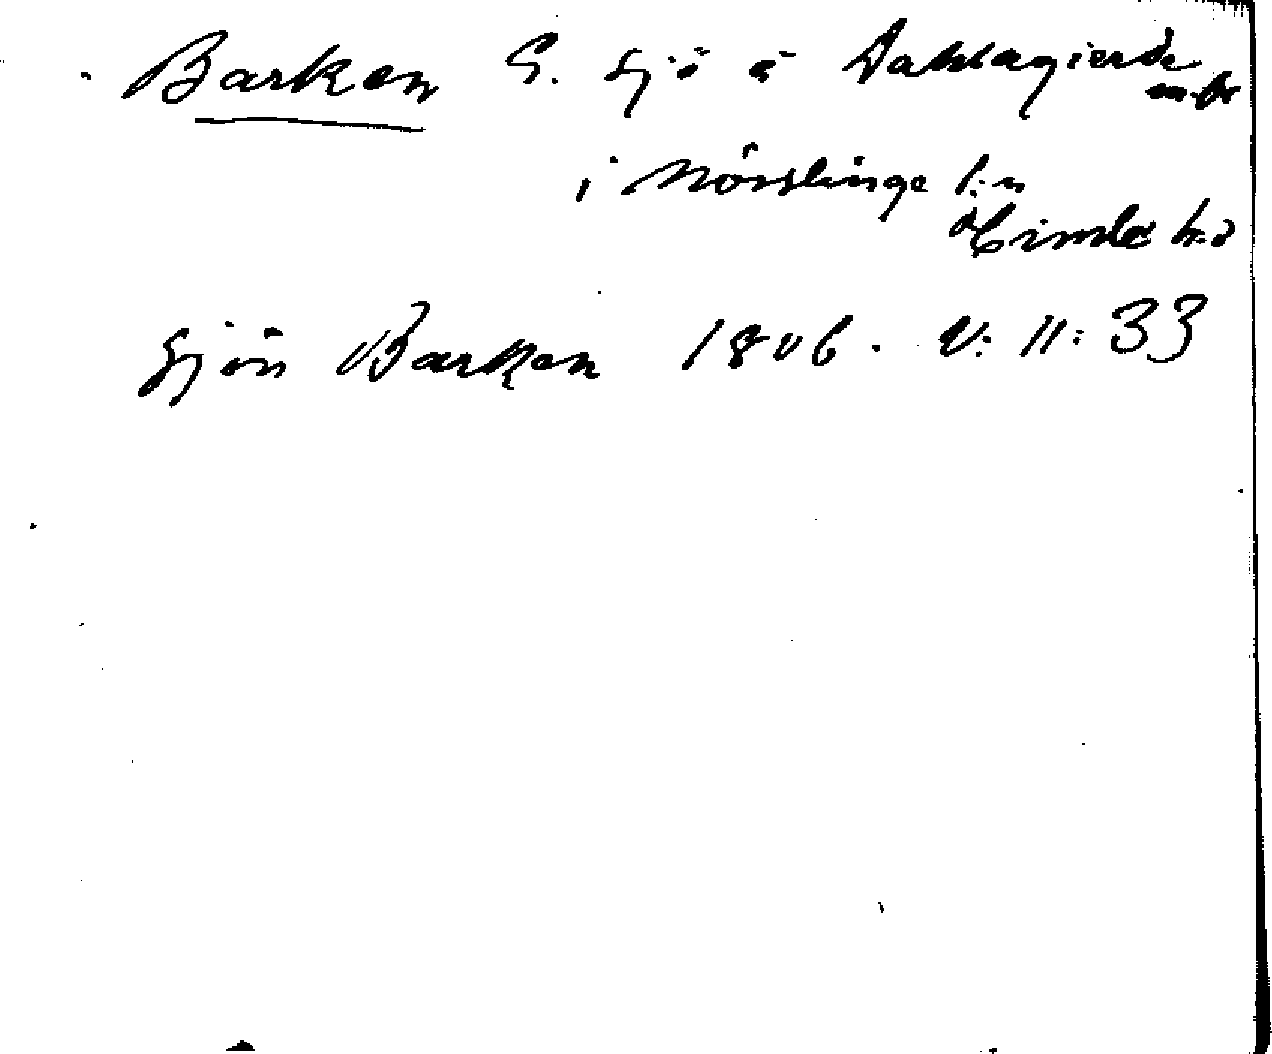 Barken S. Sjö å Dahlagierde
m. fl.
i Nörslinge s:n
Himle h:d
Sjön Barken 1806. V: 11: 33